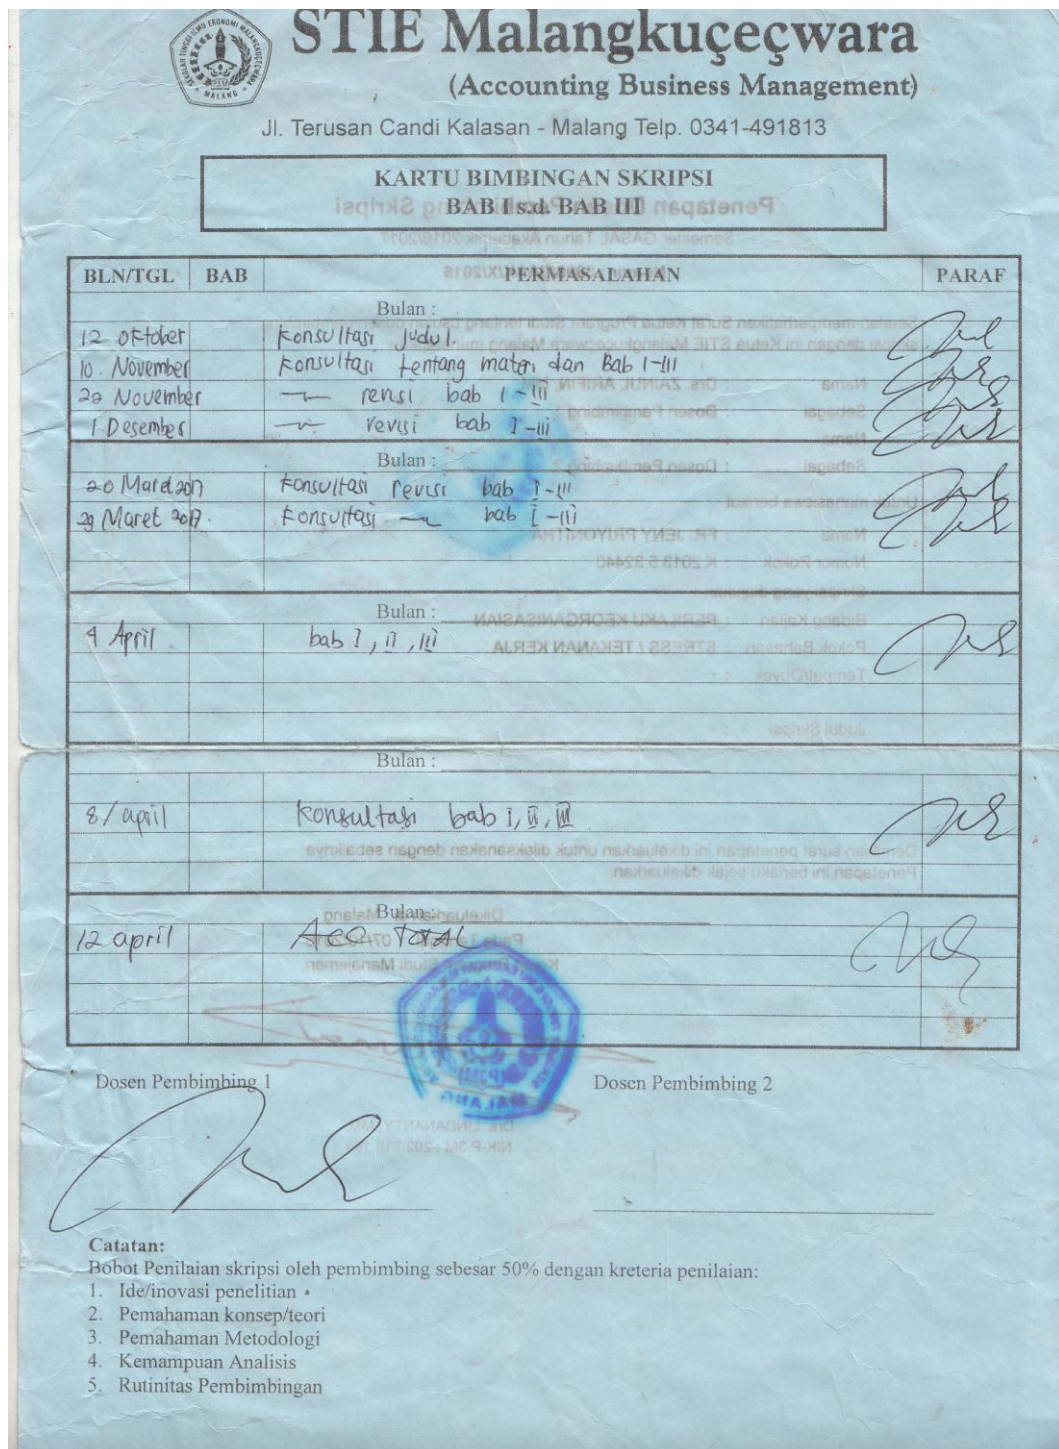 STIE Malangkuçeçwara
(Accounting Business Management)
Jl. Terusan Candi Kalasan - Malang Telp. 0341-491813
KARTU BIMBINGAN SKRIPSI
BAB I s.d. BAB III
BLN/TGL BAB PERMASALAHAN PARAF
Bulan :
12 Oktober Konsultasi judul.
10 November Konsultasi tentang materi dan Bab I-III
November revisi bab I-III
1 Desember revisi bab I-III
Bulan :
20 Maret 2017 Konsultasi revisi bab I-III
29 Maret 2017. Konsultasi bab I-III
Bulan :
4 April. bab I, II, III
Bulan :
8/april Konsultasi bab I, II, III
Bulan :
12 april ACC TOTAL
Dosen Pembimbing 1 Dosen Pembimbing 2
Catatan:
Bobot Penilaian skripsi oleh pembimbing sebesar 50% dengan kreteria penilaian:
1. Ide/inovasi penelitian
2. Pemahaman konsep/teori
3. Pemahaman Metodologi
4. Kemampuan Analisis
5. Rutinitas Pembimbingan